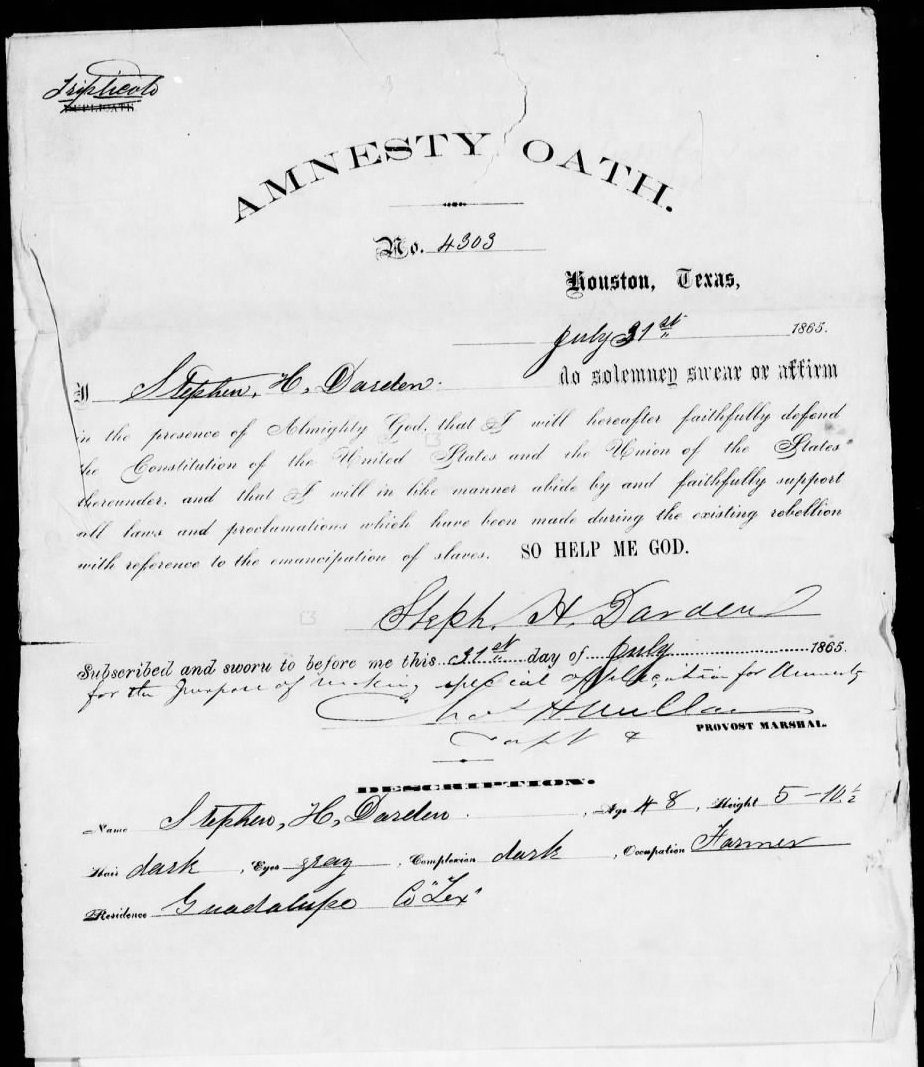 Triplicate
DUPLICATE
AMNESTY OATH.
No. 4303
Houston, Texas,
July 31st 1865.
I Stephen, H, Darden. do solemney swear or affirm
in the presence of Almighty God, that I will hereafter faithfully defend
the Constitution of the United States and the Union of the States
thereunder, and that I will in like manner abide by and faithfully support
all laws and proclamations which have been made during the existing rebellion
with reference to the emancipation of slaves. SO HELP ME GOD.
Steph. H. Darden
Subscribed and sworn to before me this 31st day of July 1865
for the purpose of making special application for Amnesty
PROVOST MARSHAL.
Capt &
DESCRIPTION.
Name Stephen, H, Darden. , Age 48 , Height 5-10 1/2
Hair dark , Eyes gray , Complexion dark , Occupation Farmer
Residence Guadalupe Co "Tex"